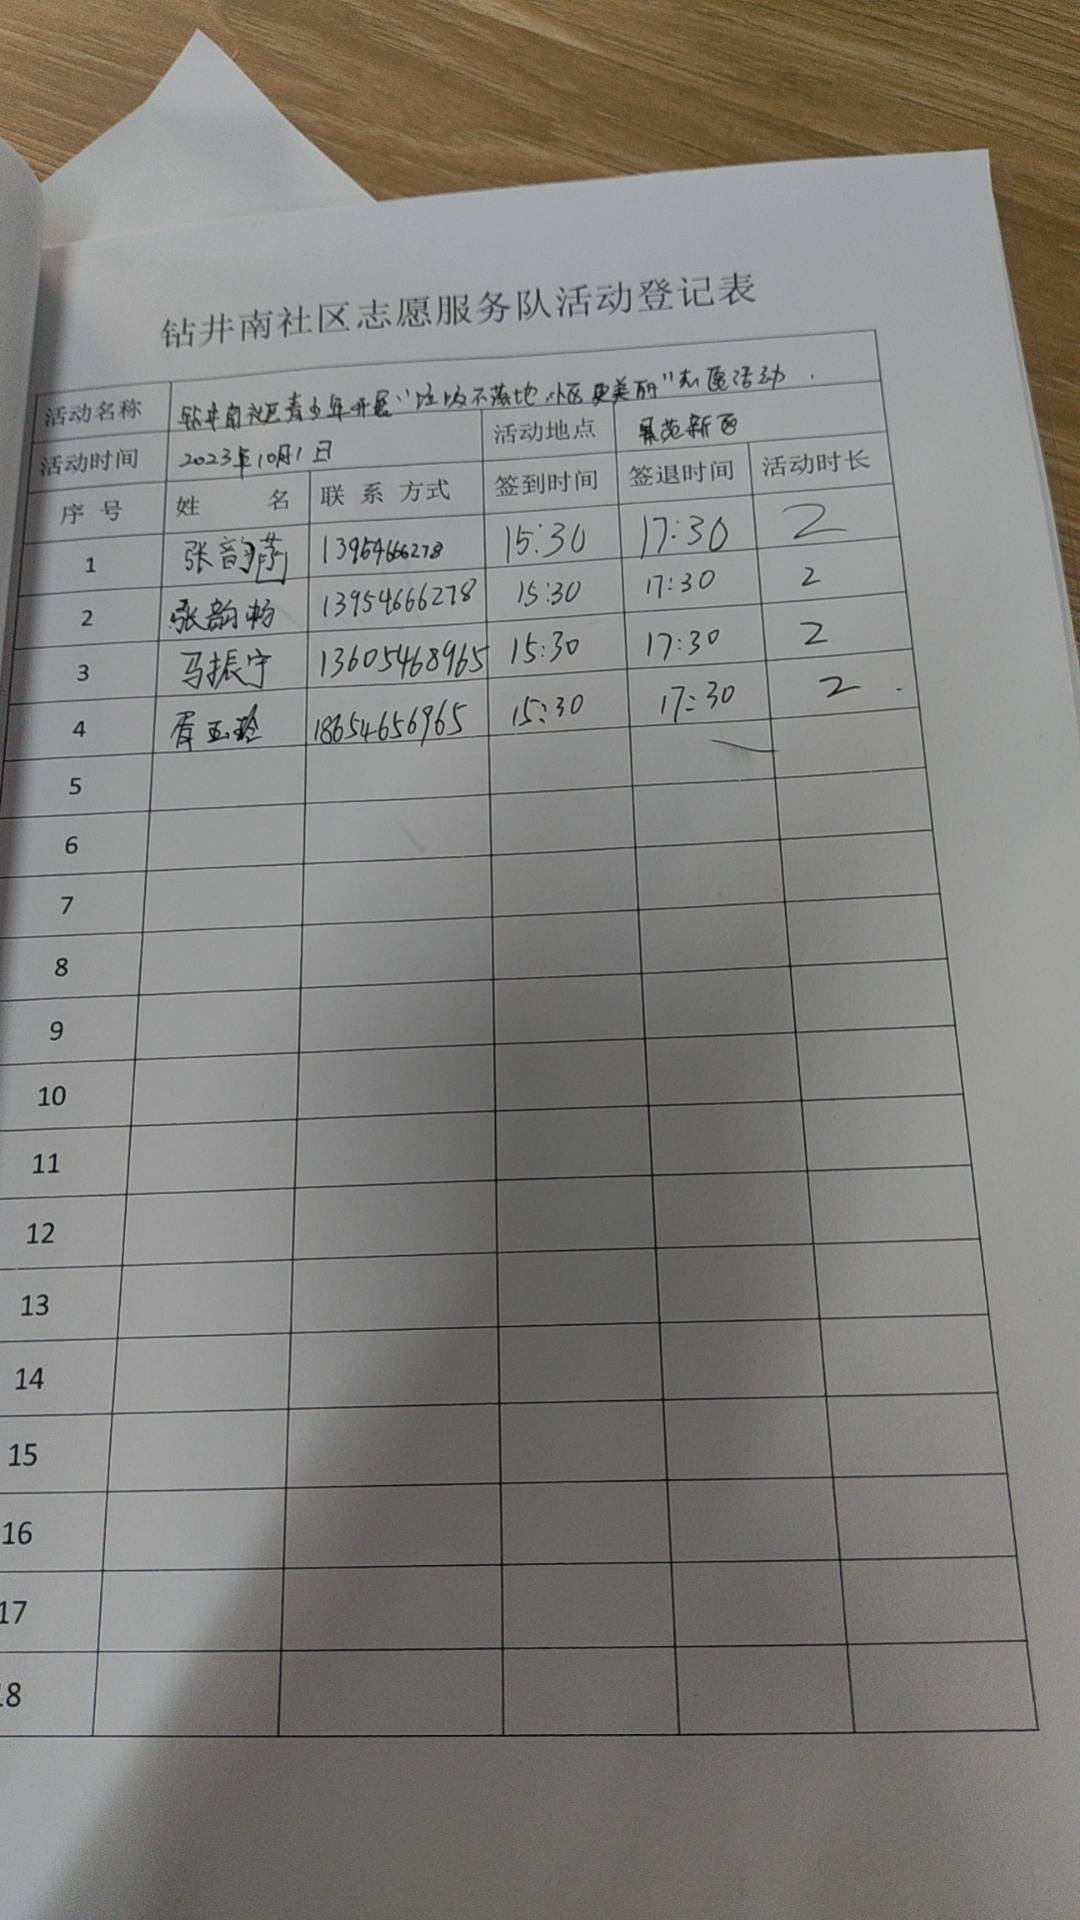 钻井南社区志愿服务队活动登记表
活动名称 钻井南社区青少年开展"垃圾不落地,小区更美丽"志愿活动.
活动时间 2023年10月1日 活动地点 景苑新区
序号 姓 名 联系方式 签到时间 签退时间 活动时长
1 张韵 13954666278 15:30 17:30 2
2 张韵畅 13954666278 15:30 17:30 2
3 马振宁 13605468965 15:30 17:30 2
4 胥玉玲 18654656965 15:30 17:30 2
5
6
7
8
9
10
11
12
13
14
15
16
17
18